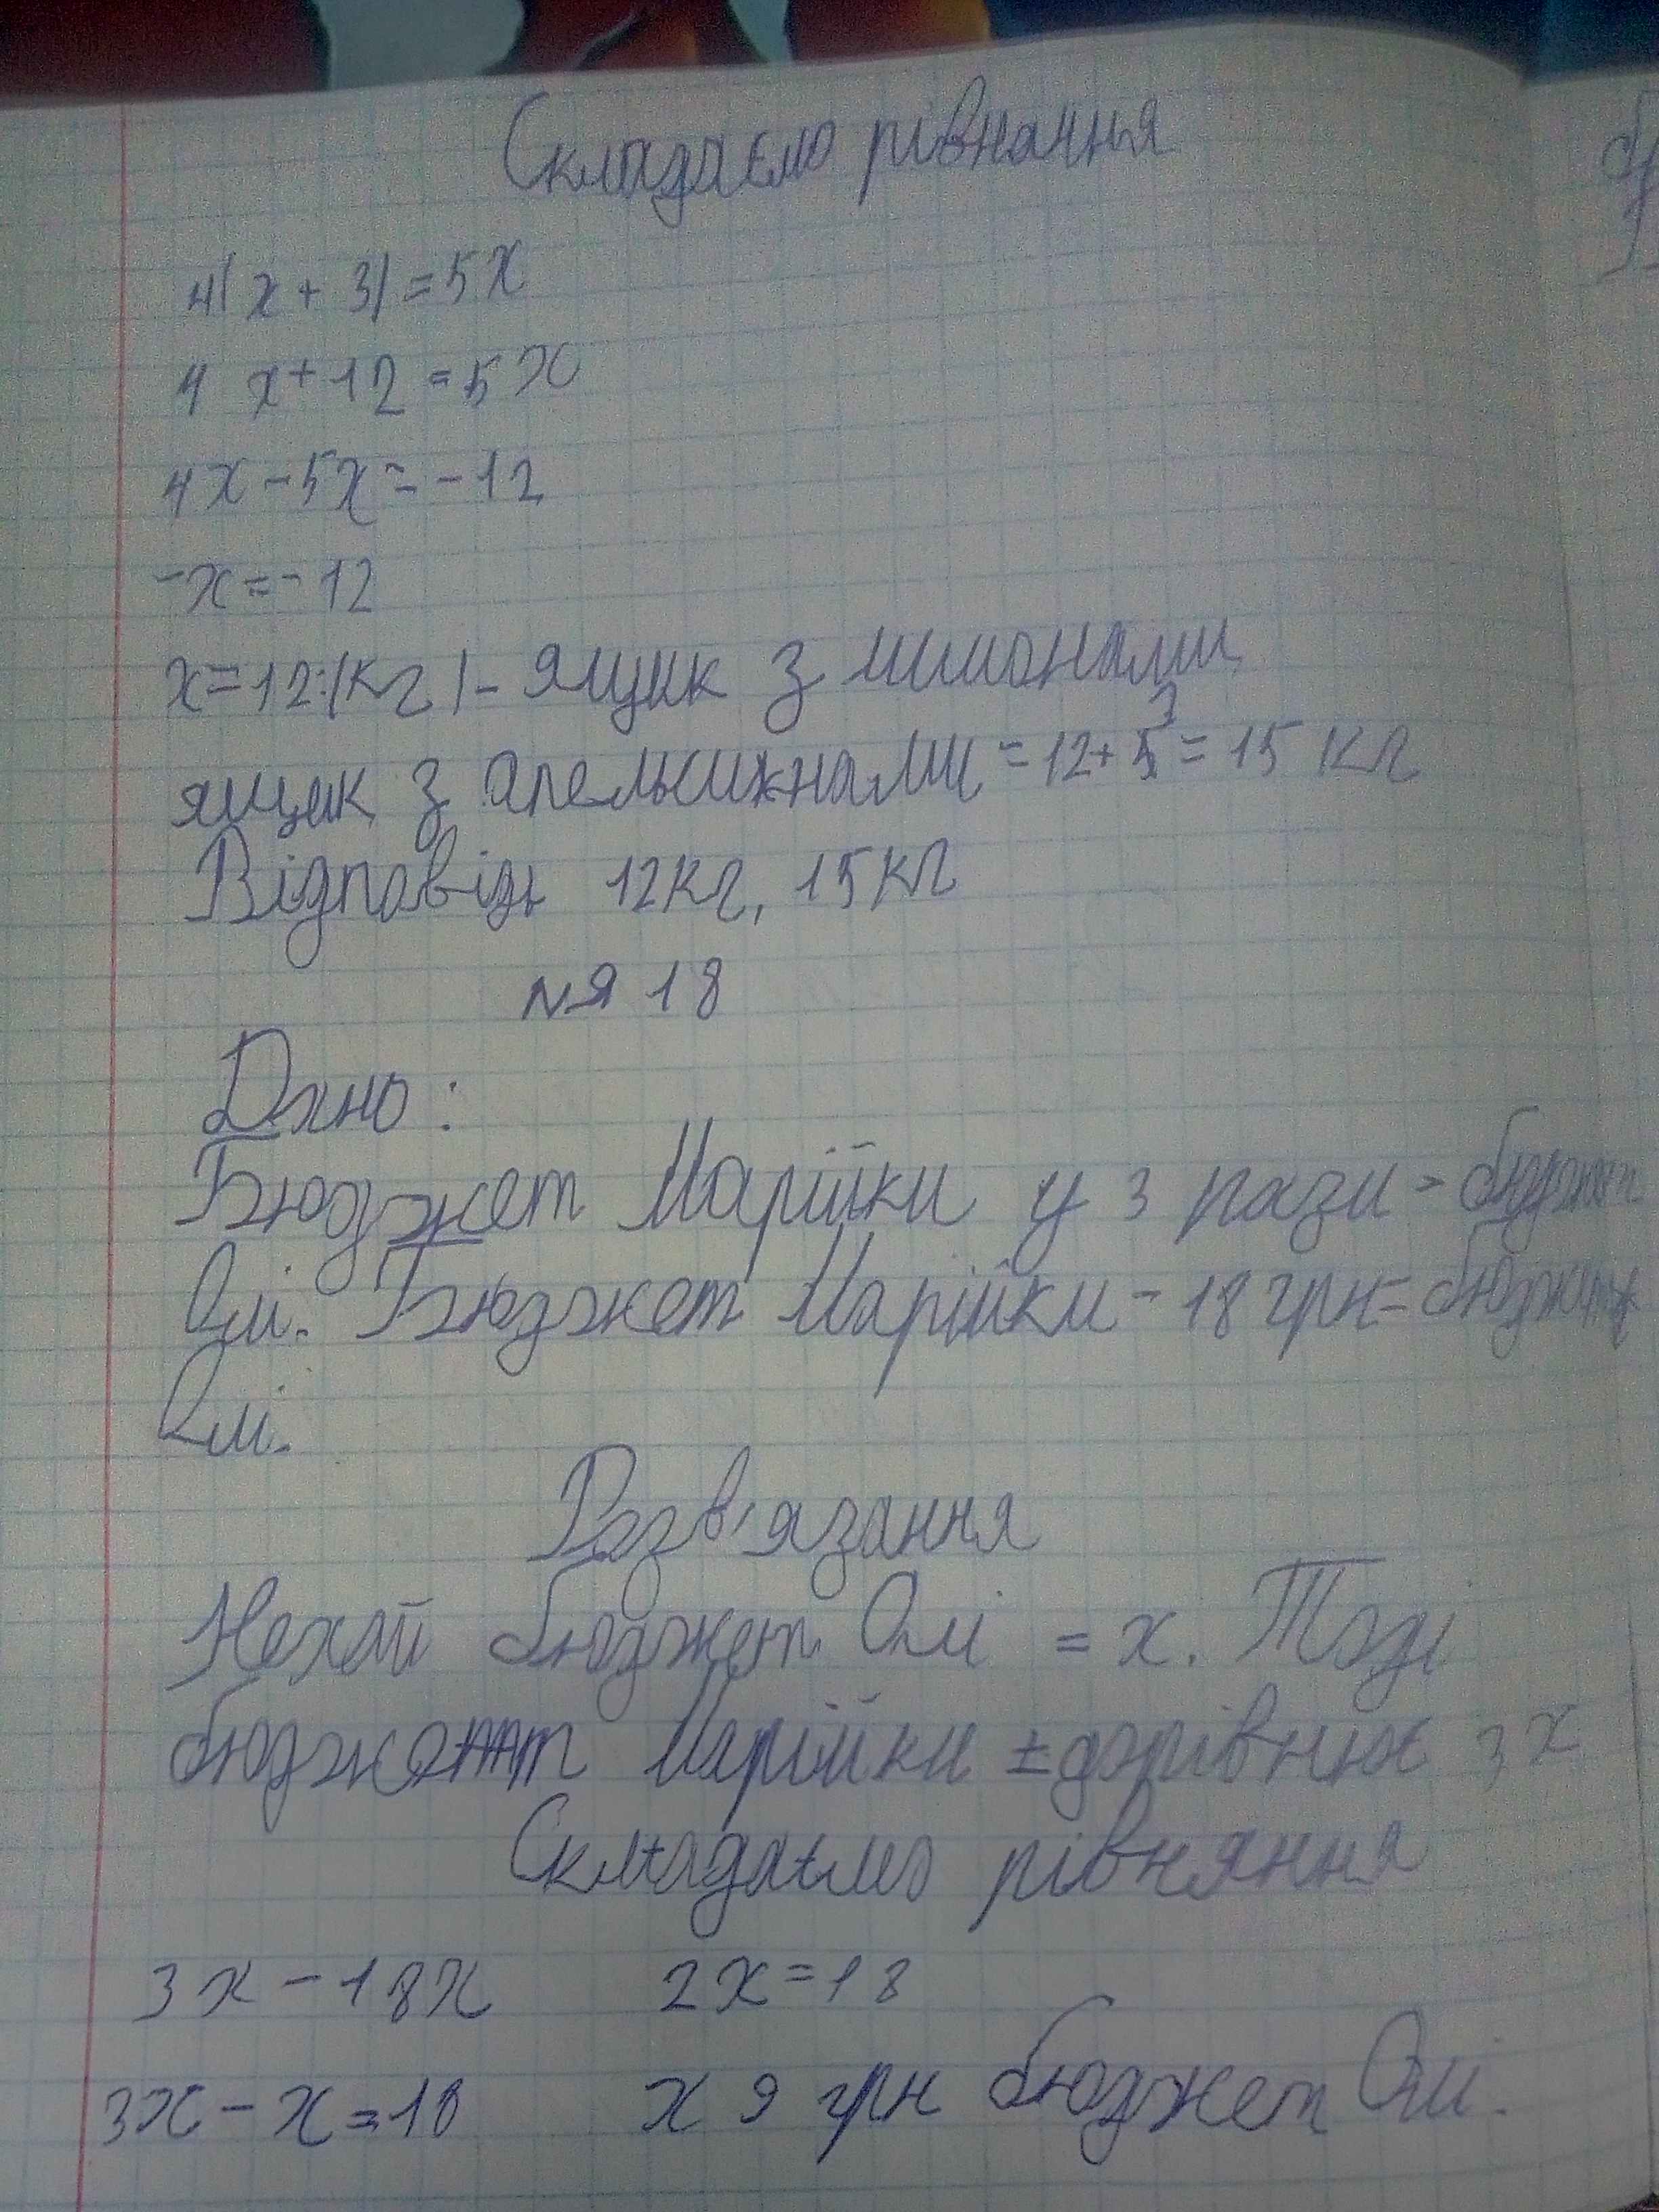 Складаємо рівняння
4(x + 3) = 5x
4 x + 12 = 5x
4x - 5x = -12
-x = -12
x = 12 (кг) - ящик з лимонами
ящик з апельсинами = 12 + 3 = 15 кг
Відповідь 12кг, 15кг
918
Дано:
Бюджет Марійки у 3 рази > бюджет
Олі. Бюджет Марійки - 18 грн = бюджету
Олі.
Розв'язання
Нехай бюджет Олі = x. Тоді
бюджет Марійки дорівнює 3x
Складаємо рівняння
3x - 18x 2x = 18
3x - x = 18 x 9 грн бюджет Олі.